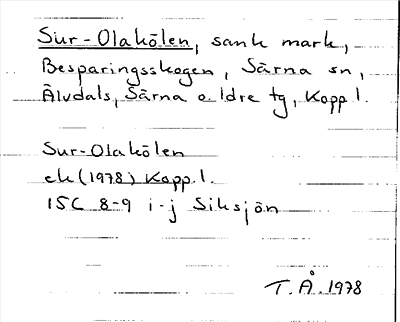 Sur-Olakölen, sank mark,
Besparingsskogen, Särna sn,
Älvdals, Särna o. Idre tg, Kopp l.
Sur-Olakölen
ek (1978) Kopp. l.
15C 8-9 i-j Siksjön
T. Å. 1978